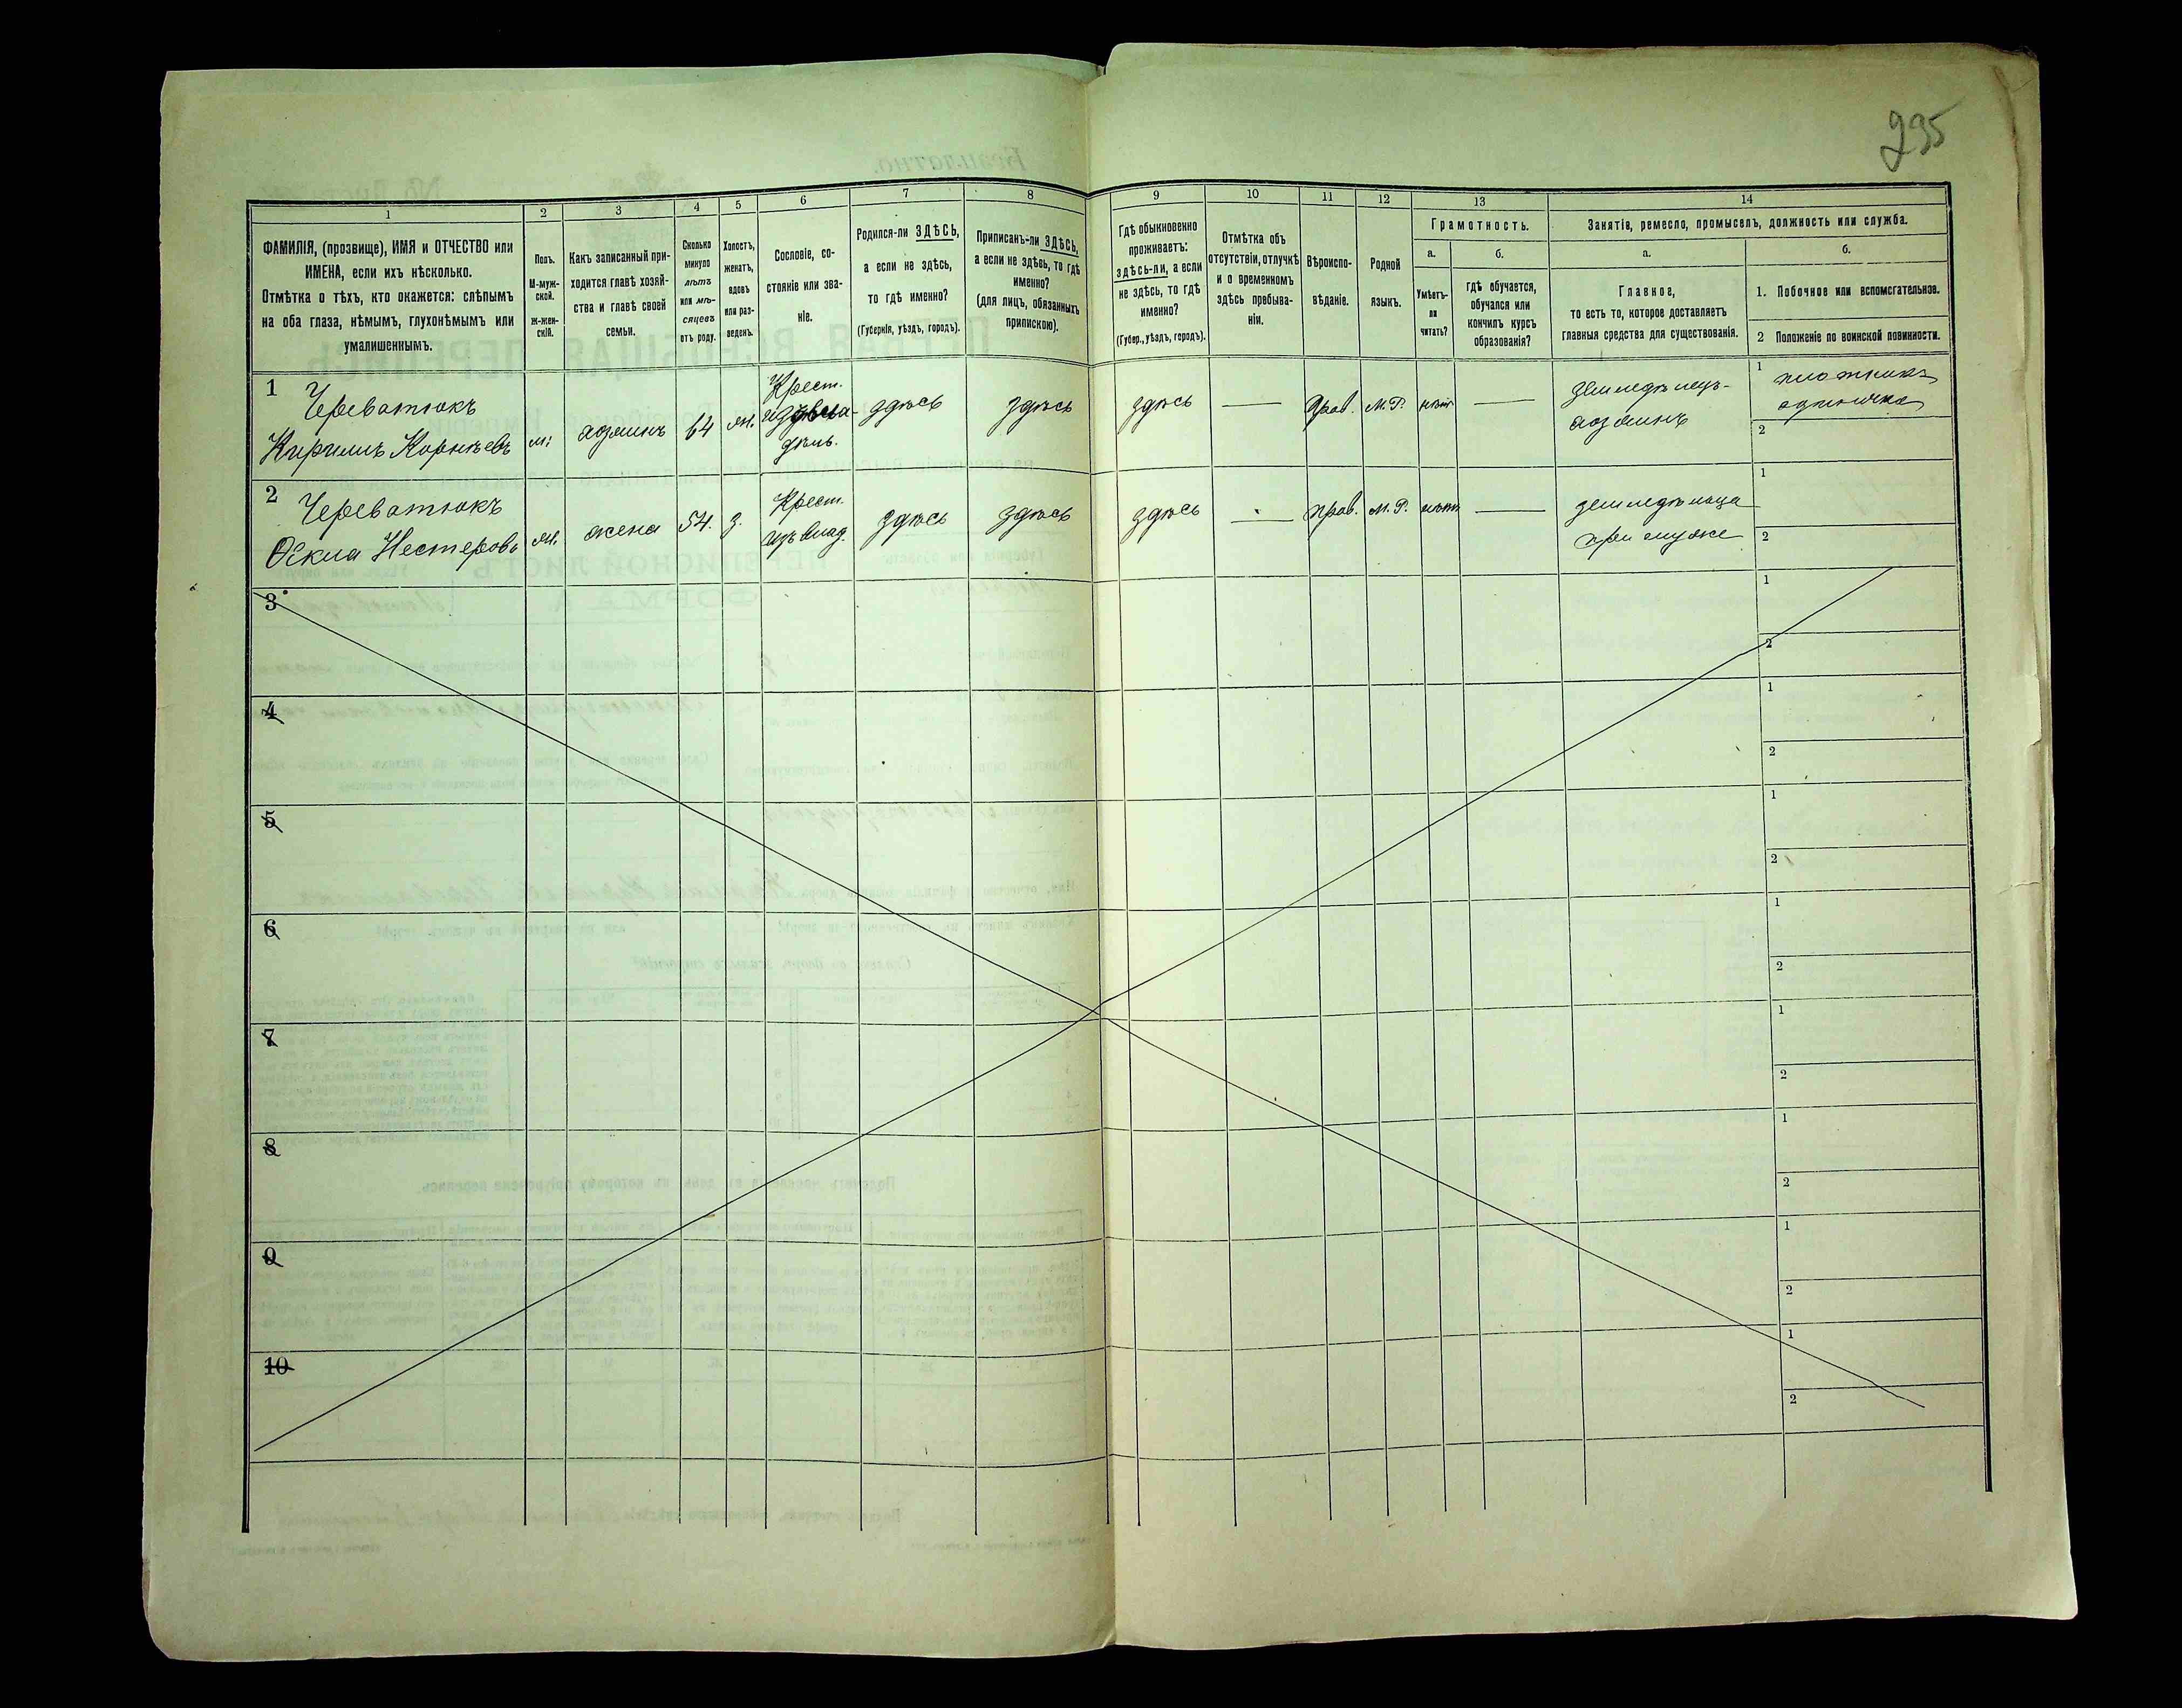 295
1
2
3
4
5
6
7
8
9
10
11
12
13
14
ФАМИЛІЯ, (прозвище), ИМЯ и ОТЧЕСТВО или
ИМЕНА, если ихъ нѣсколько.
Отмѣтка о тѣхъ, кто окажется: слѣпымъ
на оба глаза, нѣмымъ, глухонѣмымъ или
умалишеннымъ.
Полъ.
М-муж-
ской.
Ж-жен-
скій.
Какъ записанный при-
ходится главѣ хозяй-
ства и главѣ своей
семьи.
Сколько
минуло
лѣтъ
или мѣ-
сяцевъ
отъ роду.
Холостъ,
женатъ,
вдовъ
или раз-
веденъ.
Сословіе, со-
стояніе или зва-
ніе.
Родился-ли ЗДѢСЬ,
а если не здѣсь,
то гдѣ именно?
(Губернія, уѣздъ, городъ).
Приписанъ-ли ЗДѢСЬ,
а если не здѣсь, то гдѣ
именно?
(для лицъ, обязанныхъ
припискою).
Гдѣ обыкновенно
проживаетъ:
здѣсь-ли, а если
не здѣсь, то гдѣ
именно?
(Губер., уѣздъ, городъ).
Отмѣтка объ
отсутствіи, отлучкѣ
и о временномъ
здѣсь пребыва-
ніи.
Вѣроиспо-
вѣданіе.
Родной
языкъ.
Грамотность.
а.
Умѣетъ-
ли
читать?
б.
гдѣ обучается,
обучался или
кончилъ курсъ
образованія?
Занятіе, ремесло, промыселъ, должность или служба.
а.
Главное,
то есть то, которое доставляетъ
главныя средства для существованія.
б.
1. Побочное или вспомогательное.
2 Положеніе по воинской повинности.
1
Череватюкъ
Кирилъ Корнѣевъ
м:
хозяинъ
64
ж.
Крест.
здѣсь
здѣсь
здѣсь
—
прав.
М.Р.
нѣтъ
—
земледѣлецъ-
хозяинъ
1
плотникъ
одиночка
2
2
Череватюкъ
Нестерова
ж.
жена
54.
з.
Крест.
изъ влад.
здѣсь
здѣсь
здѣсь
—
прав.
М.Р.
нѣтъ
—
земледѣлица
при мужѣ
1
2
3
1
2
4
1
2
5
1
2
6
1
2
7
1
2
8
1
2
9
1
2
10
1
2